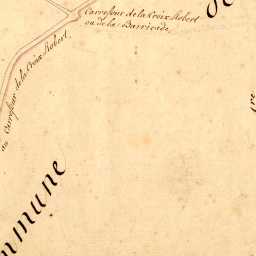 Carrefour de la Croix Robert
ou de la Barricade.
au Carrefour de la Croix Robert
mmune